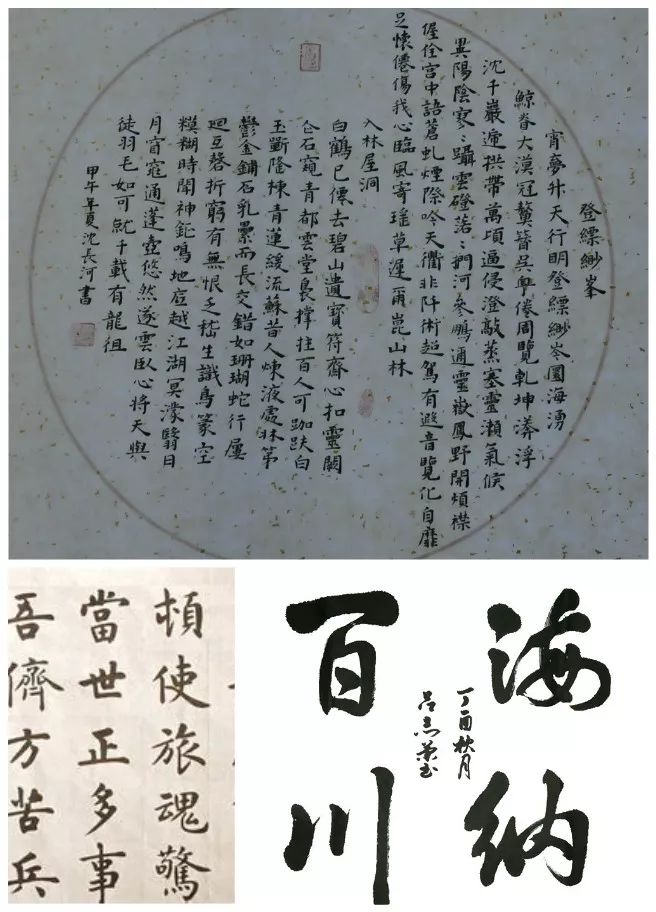 登縹緲峯
宵夢升天行明登縹緲岑圜海湧
鯨眷大漠冠鰲簪吳粵倦周覽乾坤漭浮
沈千巖遞拱帶萬頃遏侵澄敲蒸塞靈瀨氣候
異陽陰寒〻躡雲磴落〻捫河參鵬通靈嶽鳳野開煩襟
偓佺宮中語蒼虬煙際吟天衢非阡術超駕有遐音覽化自靡
足懷僊傷我心臨風寄瑤草遲爾崑山林
入林屋洞
白鶴已僊去碧山遺寶符齋心扣靈闕
仚石窺青都雲堂裊撐拄百人可跏趺白
玉斷隆棟青蓮緩流蘇昔人煉液處牀第
鬱金鋪石乳纍而長交錯如珊瑚蛇行屢
迴互磬折窮有無恨乏嵇生識鳥篆空
糢糊時聞神鉦鳴地底越江湖冥濛翳日
月窅窱通蓬壺悠然遂雲臥心將天與
徒羽毛如可就千載有龍徂
甲午年夏沈長河書
頓使旅魂驚
當世正多事
吾儕方苦兵
海納
百川
丁酉秋月
呂志書